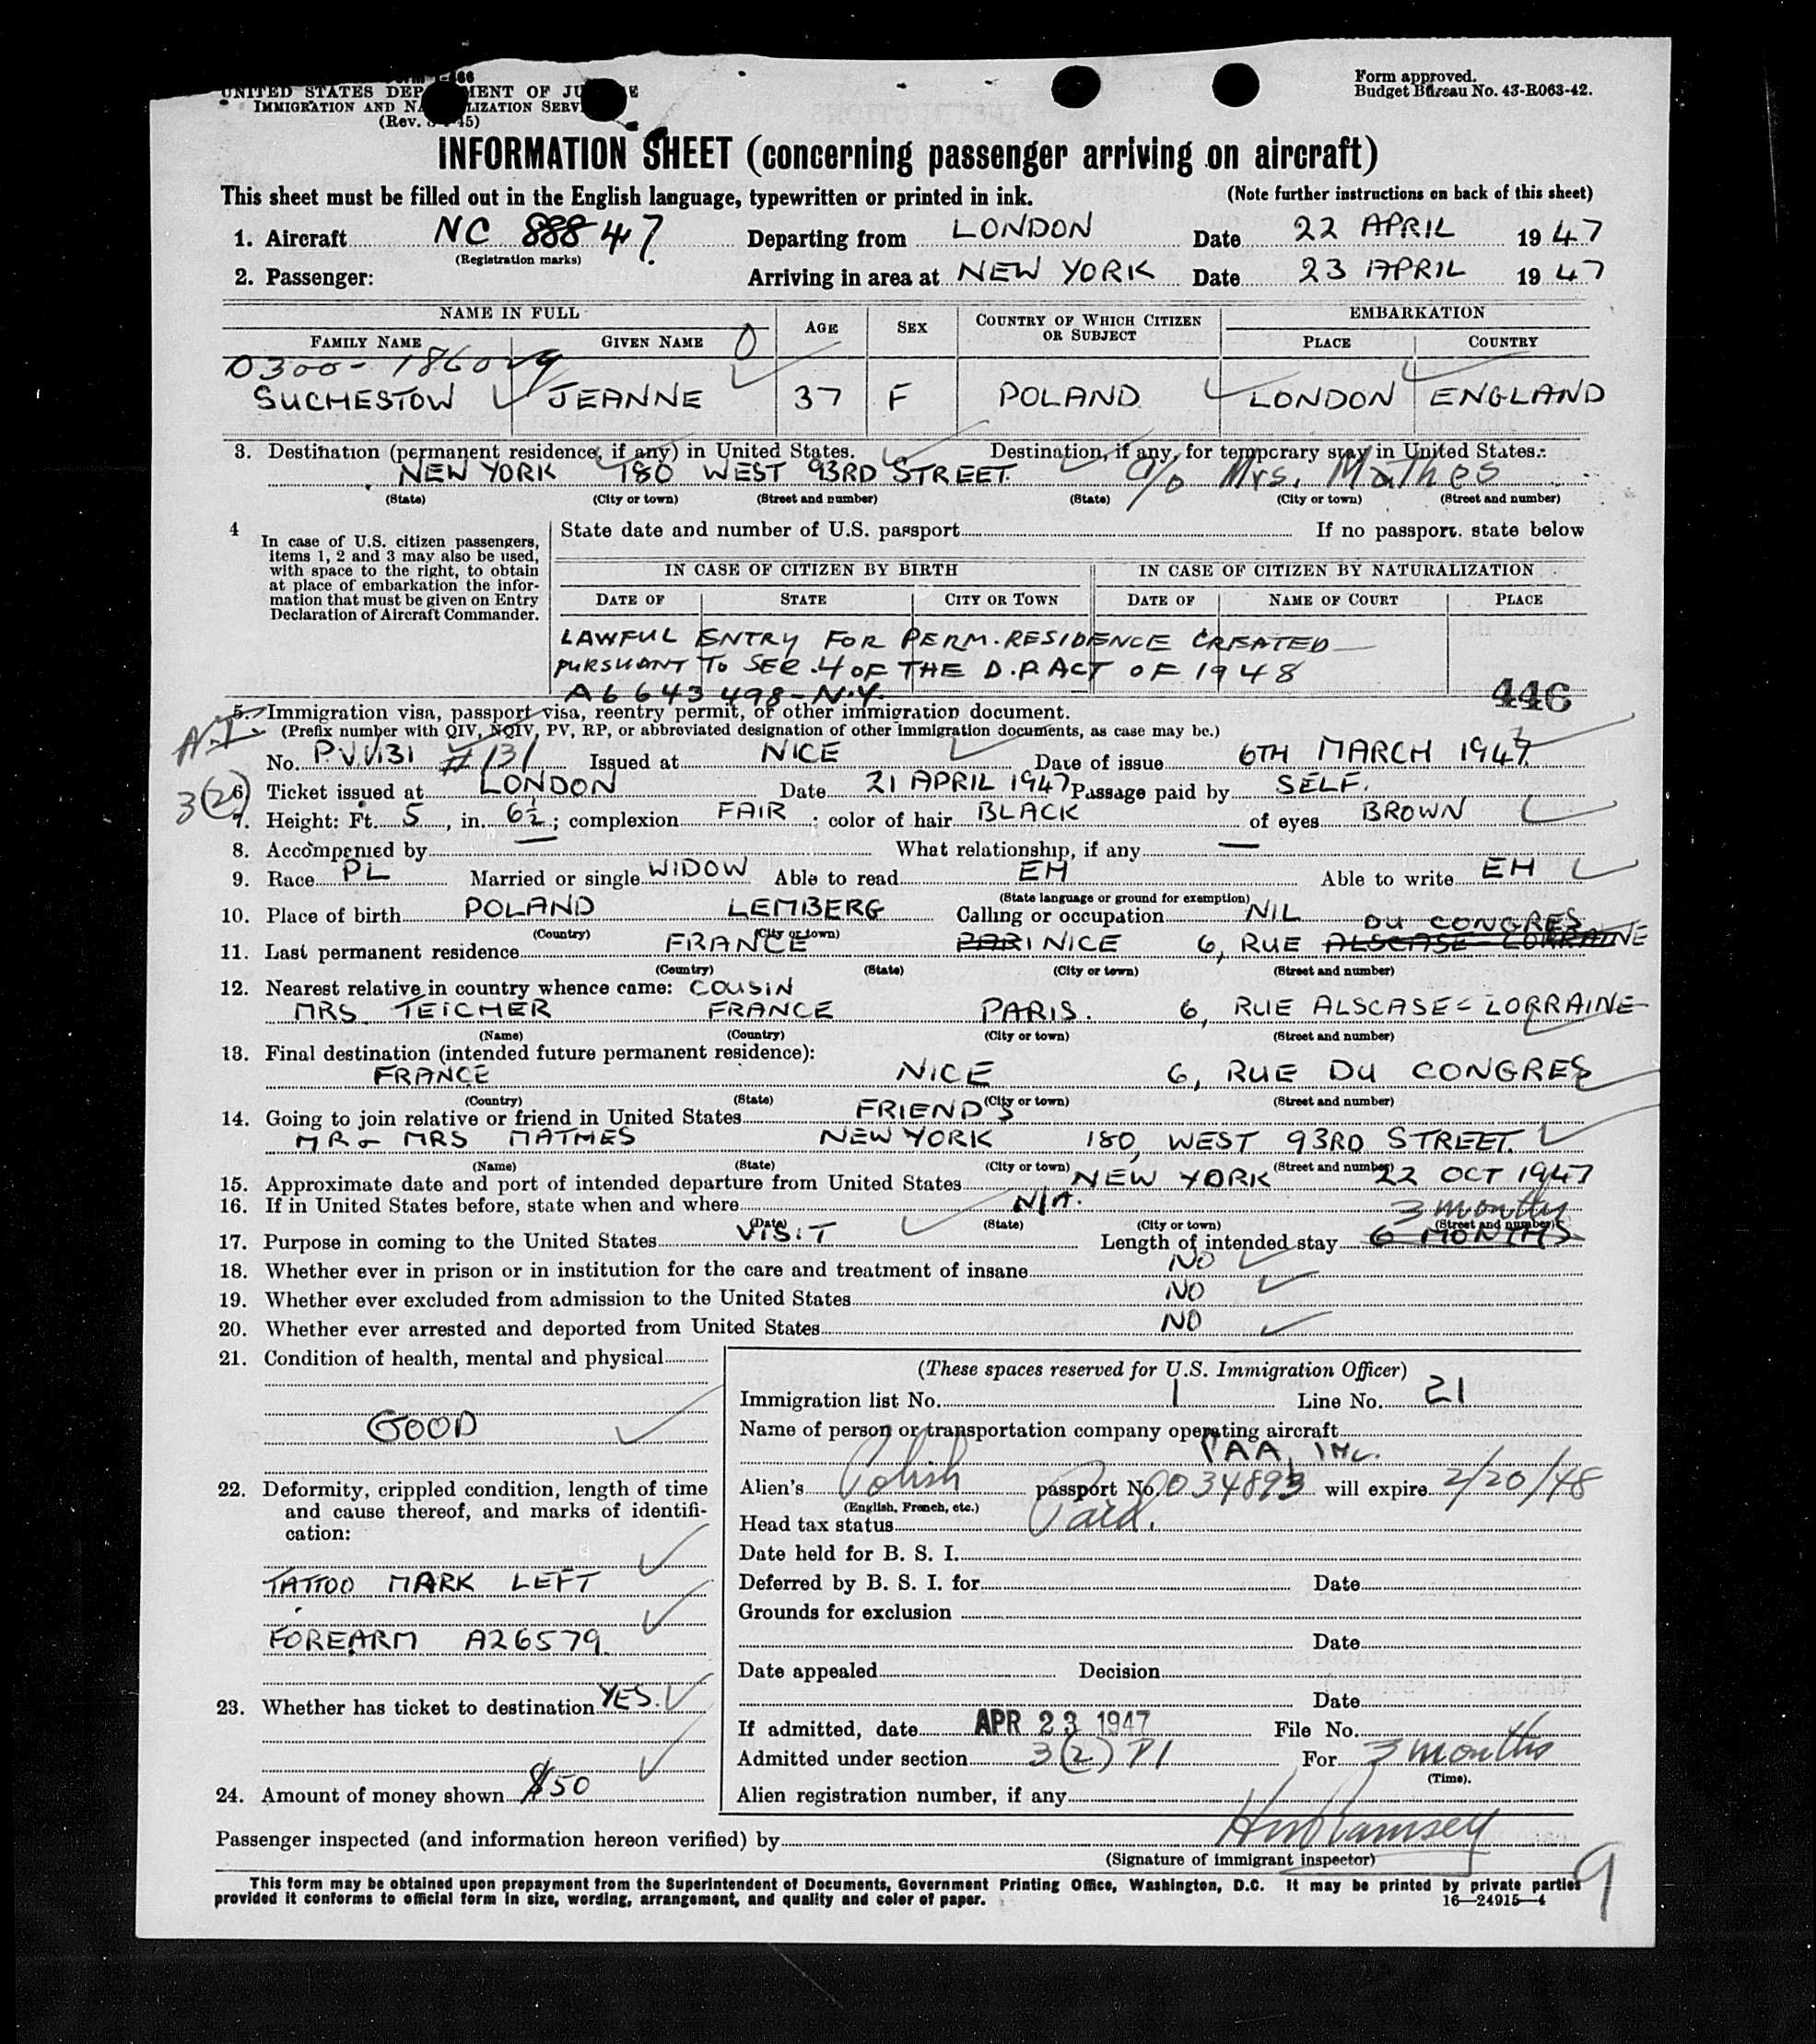 UNITED STATES DEP MENT OF JU E
IMMIGRATION AND NA LIZATION SERV
(Rev. 45)
Form approved.
Budget Bureau No. 43-R063-42.
INFORMATION SHEET (concerning passenger arriving on aircraft)
This sheet must be filled out in the English language, typewritten or printed in ink. (Note further instructions on back of this sheet)
1. Aircraft NC 88847 Departing from LONDON Date 22 APRIL 1947
(Registration marks)
2. Passenger: Arriving in area at NEW YORK Date 23 APRIL 1947
NAME IN FULL AGE SEX COUNTRY OF WHICH CITIZEN OR SUBJECT EMBARKATION
FAMILY NAME GIVEN NAME PLACE COUNTRY
0300-1860
SUCHESTOW JEANNE 37 F POLAND LONDON ENGLAND
3. Destination (permanent residence, if any) in United States. Destination, if any, for temporary stay in United States.
NEW YORK 180 WEST 93RD STREET. c/o Mrs. Mathes
(State) (City or town) (Street and number) (State) (City or town) (Street and number)
4 In case of U.S. citizen passengers, items 1, 2 and 3 may also be used, with space to the right, to obtain at place of embarkation the information that must be given on Entry Declaration of Aircraft Commander.
State date and number of U.S. passport If no passport. state below
IN CASE OF CITIZEN BY BIRTH IN CASE OF CITIZEN BY NATURALIZATION
DATE OF STATE CITY OR TOWN DATE OF NAME OF COURT PLACE
LAWFUL ENTRY FOR PERM. RESIDENCE CREATED
PURSUANT TO SEC. 4 OF THE D.P. ACT OF 1948
A6 643 498-N.Y.
446
5. Immigration visa, passport visa, reentry permit, or other immigration document.
(Prefix number with QIV, NQIV, PV, RP, or abbreviated designation of other immigration documents, as case may be.)
No. P.V.V.131 #131 Issued at NICE Date of issue 6TH MARCH 1947
3(2)
6. Ticket issued at LONDON Date 21 APRIL 1947 Passage paid by SELF.
7. Height: Ft. 5, in. 6½; complexion FAIR; color of hair BLACK of eyes BROWN
8. Accompanied by — What relationship, if any —
9. Race PL Married or single WIDOW Able to read EH Able to write EH
(State language or ground for exemption)
10. Place of birth POLAND LEMBERG Calling or occupation NIL
(Country) (City or town)
DU CONGRES
11. Last permanent residence FRANCE PARI NICE 6, RUE ALSCASE-LORRAINE
(Country) (State) (City or town) (Street and number)
12. Nearest relative in country whence came: COUSIN
MRS. TEICHER FRANCE PARIS. 6, RUE ALSCASE-LORRAINE
(Name) (Country) (City or town) (Street and number)
13. Final destination (intended future permanent residence):
FRANCE NICE 6, RUE DU CONGRES
(Country) (State) (City or town) (Street and number)
14. Going to join relative or friend in United States FRIEND'S
MR & MRS MATHES NEW YORK 180, WEST 93RD STREET.
(Name) (State) (City or town) (Street and number)
15. Approximate date and port of intended departure from United States NEW YORK 22 OCT 1947
16. If in United States before, state when and where N/A.
(Date) (State) (City or town) (Street and number)
3 months
17. Purpose in coming to the United States VISIT Length of intended stay 6 MONTHS
18. Whether ever in prison or in institution for the care and treatment of insane NO
19. Whether ever excluded from admission to the United States NO
20. Whether ever arrested and deported from United States NO
21. Condition of health, mental and physical
GOOD
22. Deformity, crippled condition, length of time and cause thereof, and marks of identification:
TATTOO MARK LEFT
FOREARM A26579
23. Whether has ticket to destination YES.
24. Amount of money shown $50
(These spaces reserved for U.S. Immigration Officer)
Immigration list No. 1 Line No. 21
Name of person or transportation company operating aircraft
PAA, INC.
Alien's Polish passport No. 034893 will expire 2/20/48
(English, French, etc.)
Head tax status Paid.
Date held for B. S. I.
Deferred by B. S. I. for Date
Grounds for exclusion
Date
Date appealed Decision
Date
If admitted, date APR 23 1947 File No.
Admitted under section 3(2) P1 For 3 months
(Time).
Alien registration number, if any
Passenger inspected (and information hereon verified) by
(Signature of immigrant inspector)
9
This form may be obtained upon prepayment from the Superintendent of Documents, Government Printing Office, Washington, D.C. It may be printed by private parties
provided it conforms to official form in size, wording, arrangement, and quality and color of paper. 16—24915—4